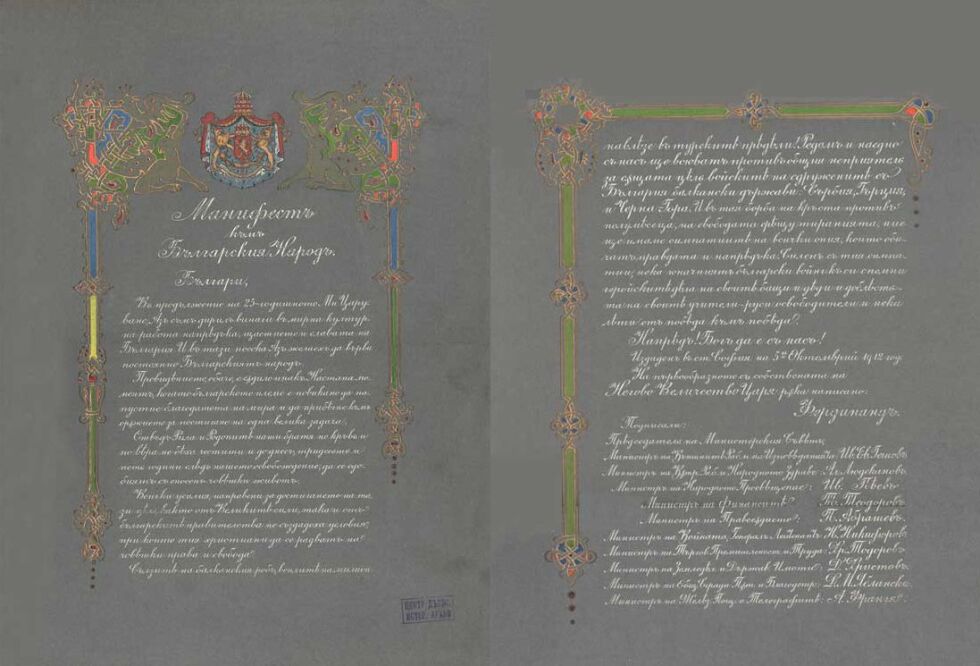 Манифестъ
къмъ
Българския Народъ.
Българи,
Въ продължение на 25-годишното Ми Цару-
ване Азъ съмъ дирилъ винаги въ мирна култур-
на работа напрѣдъка, щастието и славата на
България. И въ тази посока Азъ желаехъ да върви
постоянно Българскиятъ народъ.
Провидѣнието обаче, е съдило инакъ. Настана мо-
ментъ, когато българското племе е повикано да на-
пустне благодатта на мира и да прибѣгне къмъ
оръжието за постигане на една велика задача.
Отвъдъ Рила и Родопитѣ наши братя по кръвь и
по вѣра не бѣха честити и до днесъ, тридесеть и
петь години слѣдъ нашето освобождение, да се сдо-
биятъ съ сносенъ човѣшки животъ.
Всички усилия, направени за достигането на та-
зи цѣль, както отъ Великитѣ сили, така и отъ
българскитѣ правителства, не създадоха условия,
при които тия християни да се радватъ на
човѣшки права и свобода.
Сълзитѣ на балканския робъ, воплитѣ на милион-
ЦЕНТР. ДЪРЖ.
ИСТОР. АРХИВ
навлѣзе въ турскитѣ прѣдѣли! Редомъ и наедно
съ насъ ще воюватъ противъ общия неприятель
за същата цѣль войскитѣ на сдруженитѣ съ
България балкански държави: Сърбия, Гърция,
и Черна Гора. И въ тая борба на кръста противъ
полумѣсеца, на свободата срѣщу тиранията, ние
ще имаме симпатиитѣ на всички ония, които оби-
чатъ правдата и напрѣдъка. Силенъ съ тия симпа-
тии, нека юначниятъ български войникъ си спомни
геройскитѣ дѣла на своитѣ бащи и дѣди и доблесть-
та на своитѣ учители-руси освободители и нека
лѣти отъ побѣда къмъ побѣда!
Напрѣдъ! Богъ да е съ насъ!
Издаденъ въ ст. София на 5й Октомврий 1912 год.
На първообразното съ собствената на
Негово Величество Царя рѣка написано:
Фердинандъ.
Подписали:
Прѣдседатель на Министерския Съвѣтъ,
Министъръ на Външнитѣ Раб. и на Изповѣданията: Ив. Ев. Гешовъ
Министъръ на Вѫтр. Раб. и Народното Здраве: Ал. Людскановъ
Министъръ на Народното Просвѣщение: Ив. Пѣевъ
Министъръ на Финанситѣ: Т. Теодоровъ
Министъръ на Правосѫдието: П. Абрашевъ.
Министъръ на Войната, Генералъ-Лейтенантъ: Н. Никифоровъ
Министъръ на Търгов. Промишленость и Труда: Хр. Тодоровъ
Министъръ на Земледѣл. и Държав. Имоти: Д. Христовъ
Министъръ на Общ. Сгради Пѫт. и Благоустр.: Д. Яблански
Министъръ на Желѣз. Пощ. и Телеграфитѣ: А. Франгя.